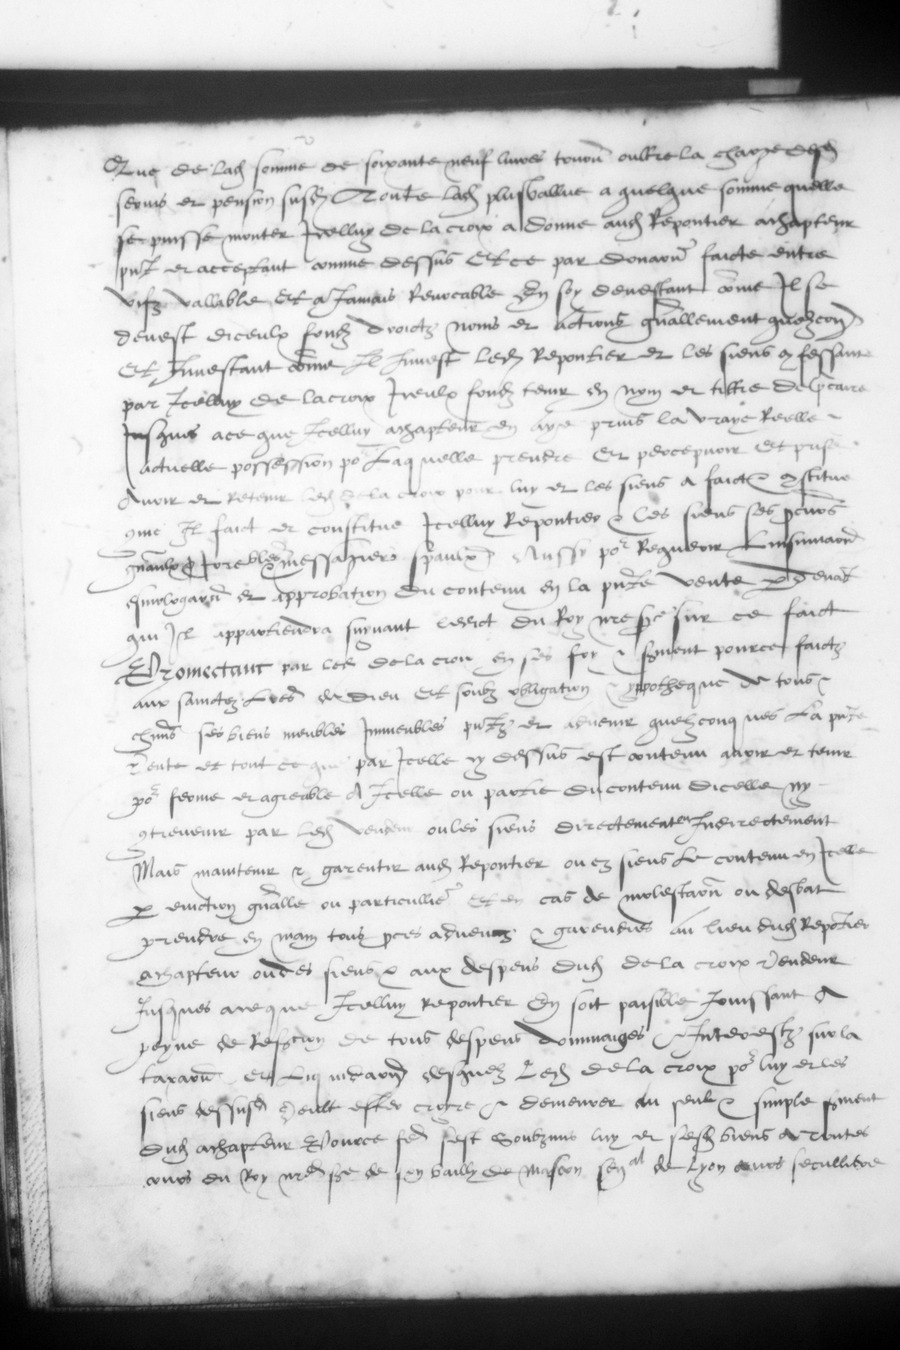 Que de lad somme de soixante neuf livres tourn oultre la charge desd
servis et pension susd Toute lad plusvallue a quelque somme quelle
se puisse monter Icelluy de la croix a donne aud Repontier achapteur
pnt et acceptant comme dessus Et ce par donaon faicte entre
vifz vallable Et a Jamais Revocable En soy devestant come Il se
devest diceulx fondz droictz noms et actions gnallement quelzconq
Et Investant come Il Investt led Repontier et les siens 9fessant
par Icelluy de lacroix Iceulx fondz tenir en nom et tiltre de pcaire
Jusques ace que Icelluy achapteur en aye prins la vraye Reelle
actuelle possession por Laquelle prendre Et percepvoir Et prise
Avoir et Retenir led de la croix pour luy et les siens a faict 9stitue
9me Il faict et constitue Icelluy Repontier & les siens ses pcurs
gnaulx Irevocbles messagiers spaulx Aussy por Requerir Linsinuaon
esmologaon et approbation du contenu en la pnte vente p devat
qui Il appartiendra suyvant ledict du Roy nre sr sur ce faict
Promectant par led de la croix en ses foy & serment pource faictz
aux sainctz de Dieu Et soubz obligation & ypotheque de tous &
chuns ses biens meubles Immeubles pntz et advenir quelzconques La pnte
vente et tout ce que par Icelle cy dessus est contenu avoir et tenir
por ferme et agreable A Icelle ou partie du contenu dicelle ny
9trevenir par led vendeur ou les siens directement et Indirectement
Mais maintenir & garentir aud Repontier ou es siens Le contenu en Icelle
p eviction gnalle ou particulliere Et en cas de molestaon ou desbat
prendre en main tous pces advenuz & garendies au lieu dud Repontier
achapteur ou des siens & aux despens dud de la croix vendeur
Jusques ace que Icelluy repontier En soit paisible Jouissant A
peyne de Refection de tous despens dommaiges & Interestz sur la
taxaon Et Liquidaon desquelz Led de la croix por luy et les
siens dessusd Veult estre creu & demeurer au seul & simple serment
dud achapteur Pource sest Soubzmis luy et sesd biens A toutes
cours du Roy nred sr de son bailly de Mascon senal de Lyon cours seculliere